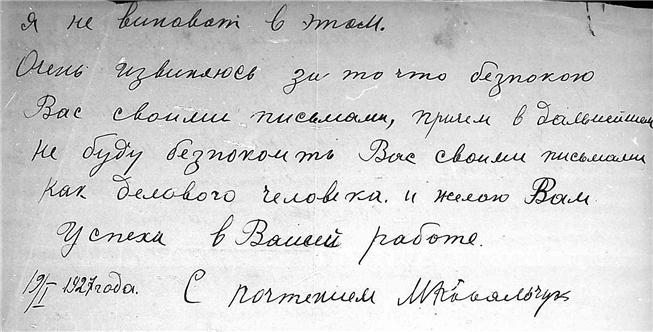 я не виноват в этом.
Очень извиняюсь за то что безпокою
Вас своими письмами, причем в дальнейшем
не буду безпокоить Вас своими письмами
как делового человека. и желаю Вам
Успеха в Вашей работе.
19/I 1927 года. С почтением МКовальчук